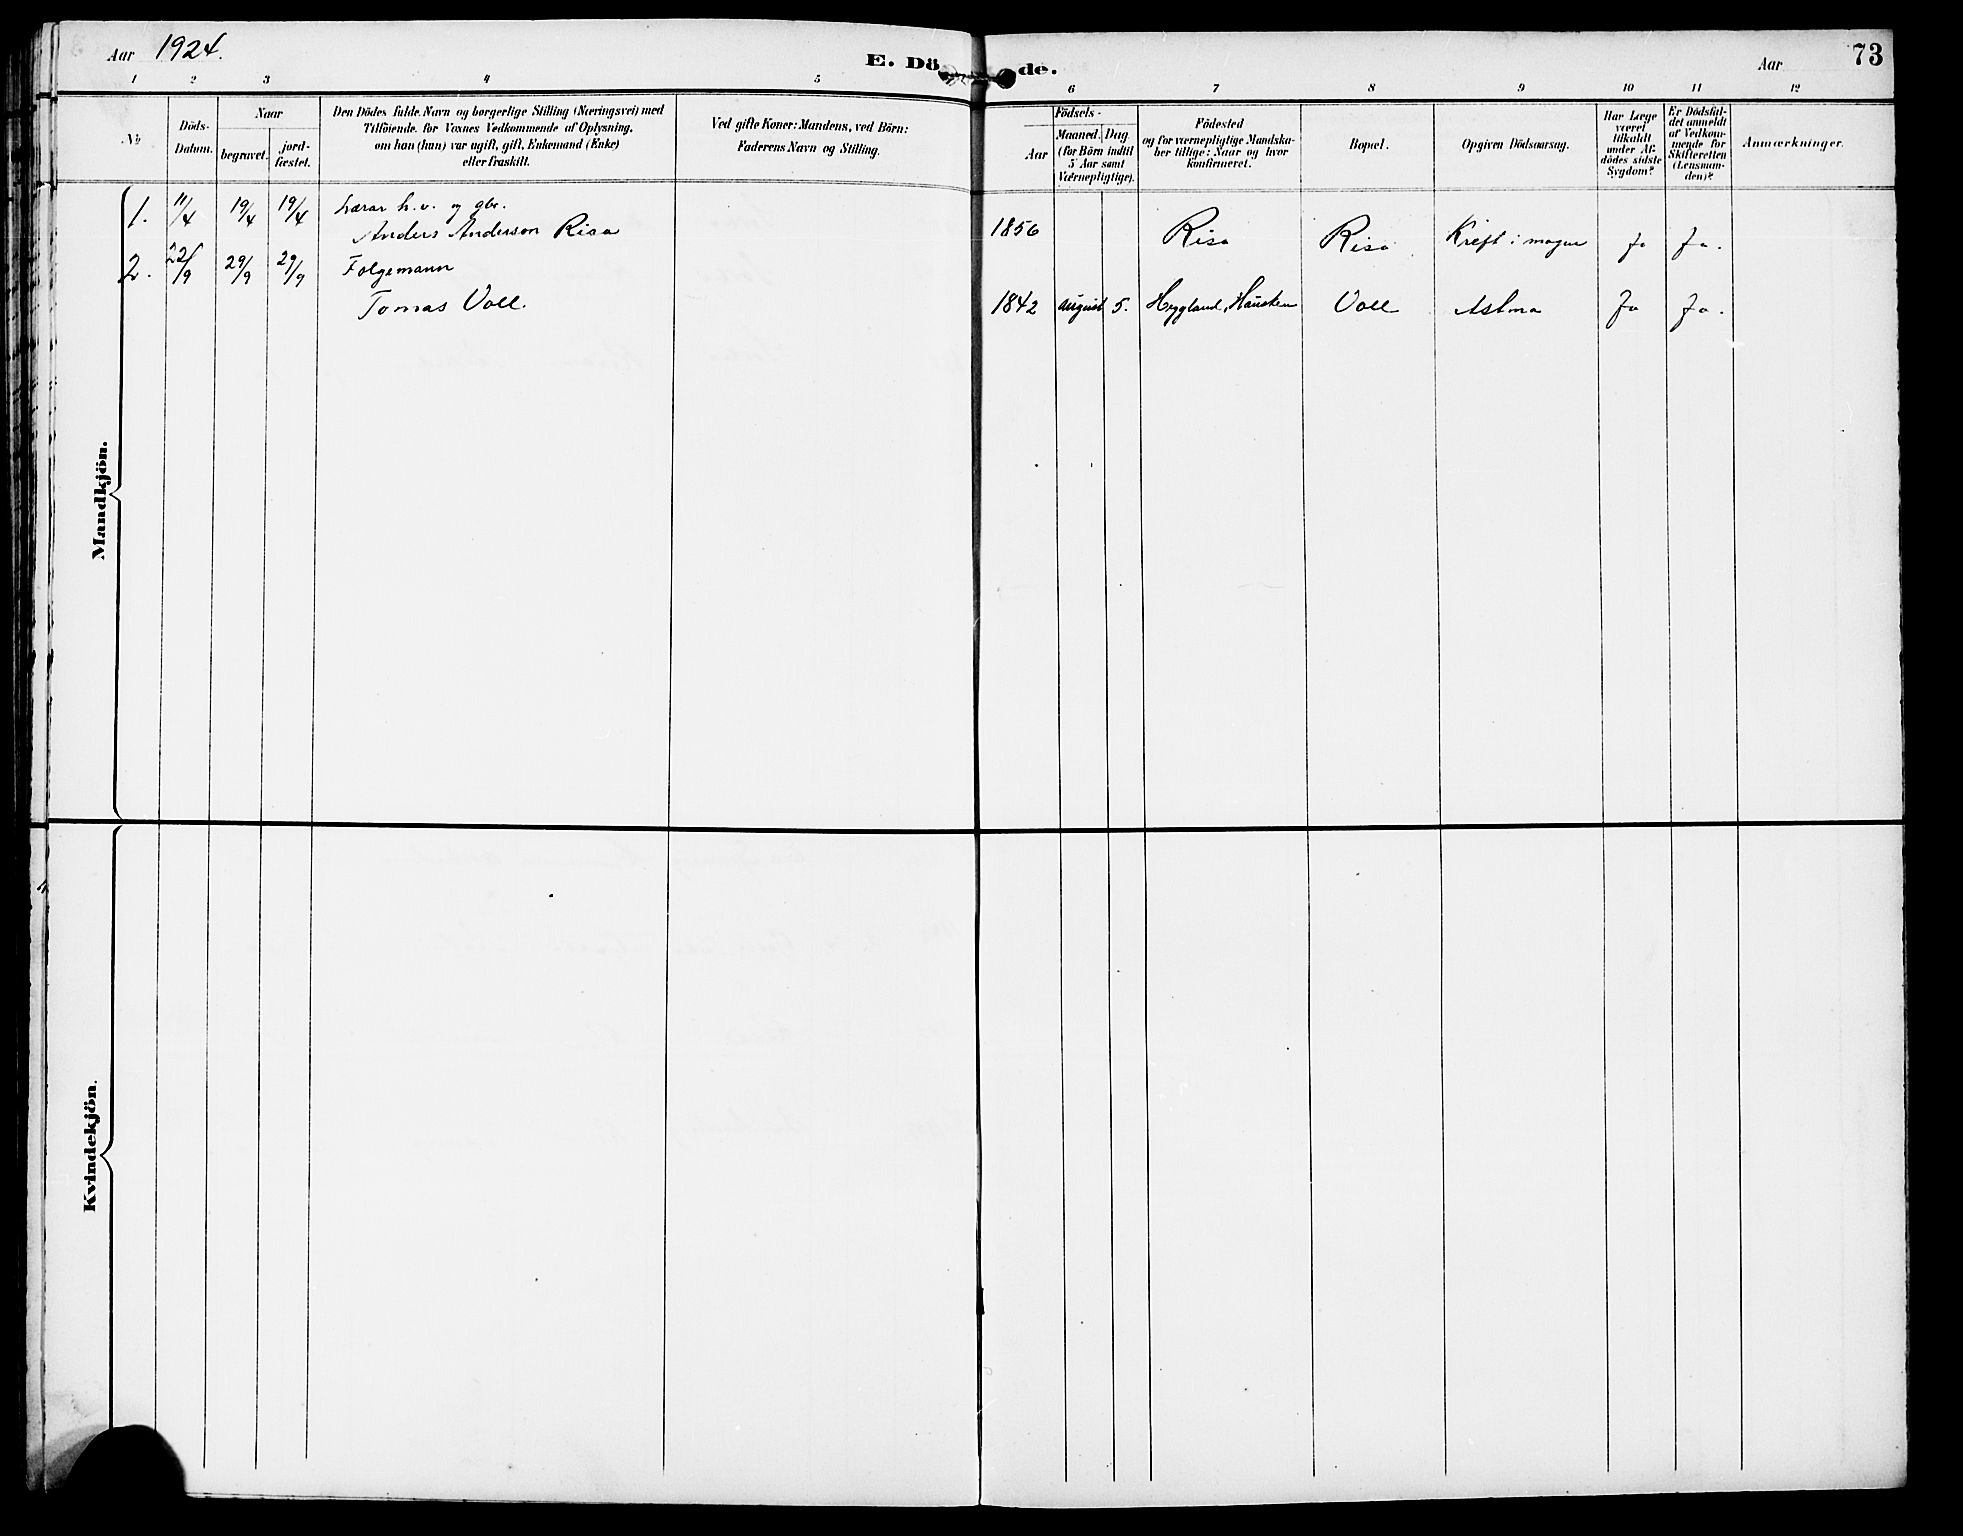 Aar 1924.
E. Döde.
Aar
73
1 2 3 4 5 6 7 8 9 10 11 12
No
Döds-
Datum.
Naar
begravet.
jord-
fæstet.
Den Dödes fulde Navn og borgerlige Stilling (Næringsvei) med
Tilföiende, for Voxnes Vedkommende af Oplysning,
om han (hun) var ugift, gift, Enkemand (Enke)
eller fraskilt.
Ved gifte Koner: Mandens, ved Börn:
Faderens Navn og Stilling.
Födsels-
Aar
Maaned. Dag.
(for Börn indtil
5 Aar samt
Værnepligtige).
Födested
og for værnepligtige Mandska-
ber tillige: Naar og hvor
konfirmeret.
Bopæl.
Opgiven Dödsaarsag.
Har Læge
været
tilkaldt
under Af-
dödes sidste
Sygdom?
Er Dödsfal-
det anmeldt
af Vedkom-
mende for
Skifteretten
(Lensman-
den)?
Anmærkninger.
Mandkjön.
1. 11/4 19/4 19/4 Lærar h.v. og gbr.
Anders Anderson Risa 1856 Risa Risa Kreft i magen Ja Ja.
2. 22/9 29/9 29/9 Folgemann
Tomas Voll. 1842 august 5. Hegglund, Hausken Voll Astma Ja Ja.
Kvindekjön.